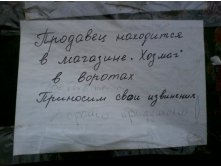 Продавец находится
в магазине. Хозмаг
в воротах
Приносим свои извинения